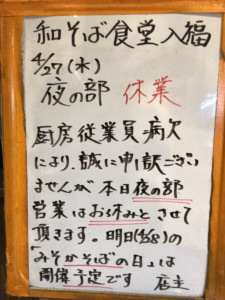 和そば食堂入福
4/27(水)
夜の部 休業
厨房従業員病欠
により、誠に申し訳ござい
ませんが本日夜の部
営業はお休みとさせて
頂きます。明日(4/28)の
「みそかそばの日」は
開催予定です 店主